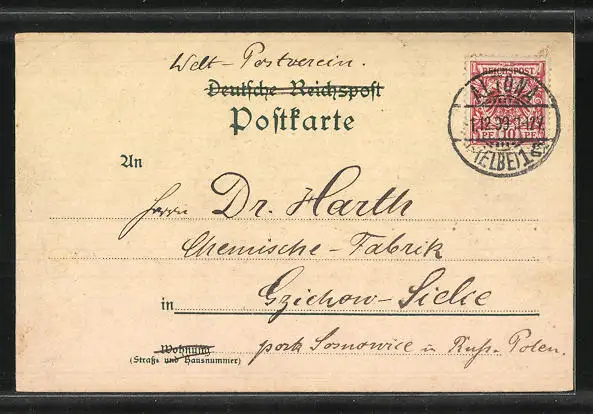 Welt-Postverein.
Deutsche Reichspost
Postkarte
REICHSPOST
ALTONA
(ELBE) 1
10
An
Herrn Dr. Harth
Chemische-Fabrik
in Gzichow-Sielce
Wohnung
(Straße und Hausnummer)
Sosnowice in Russ. Polen.